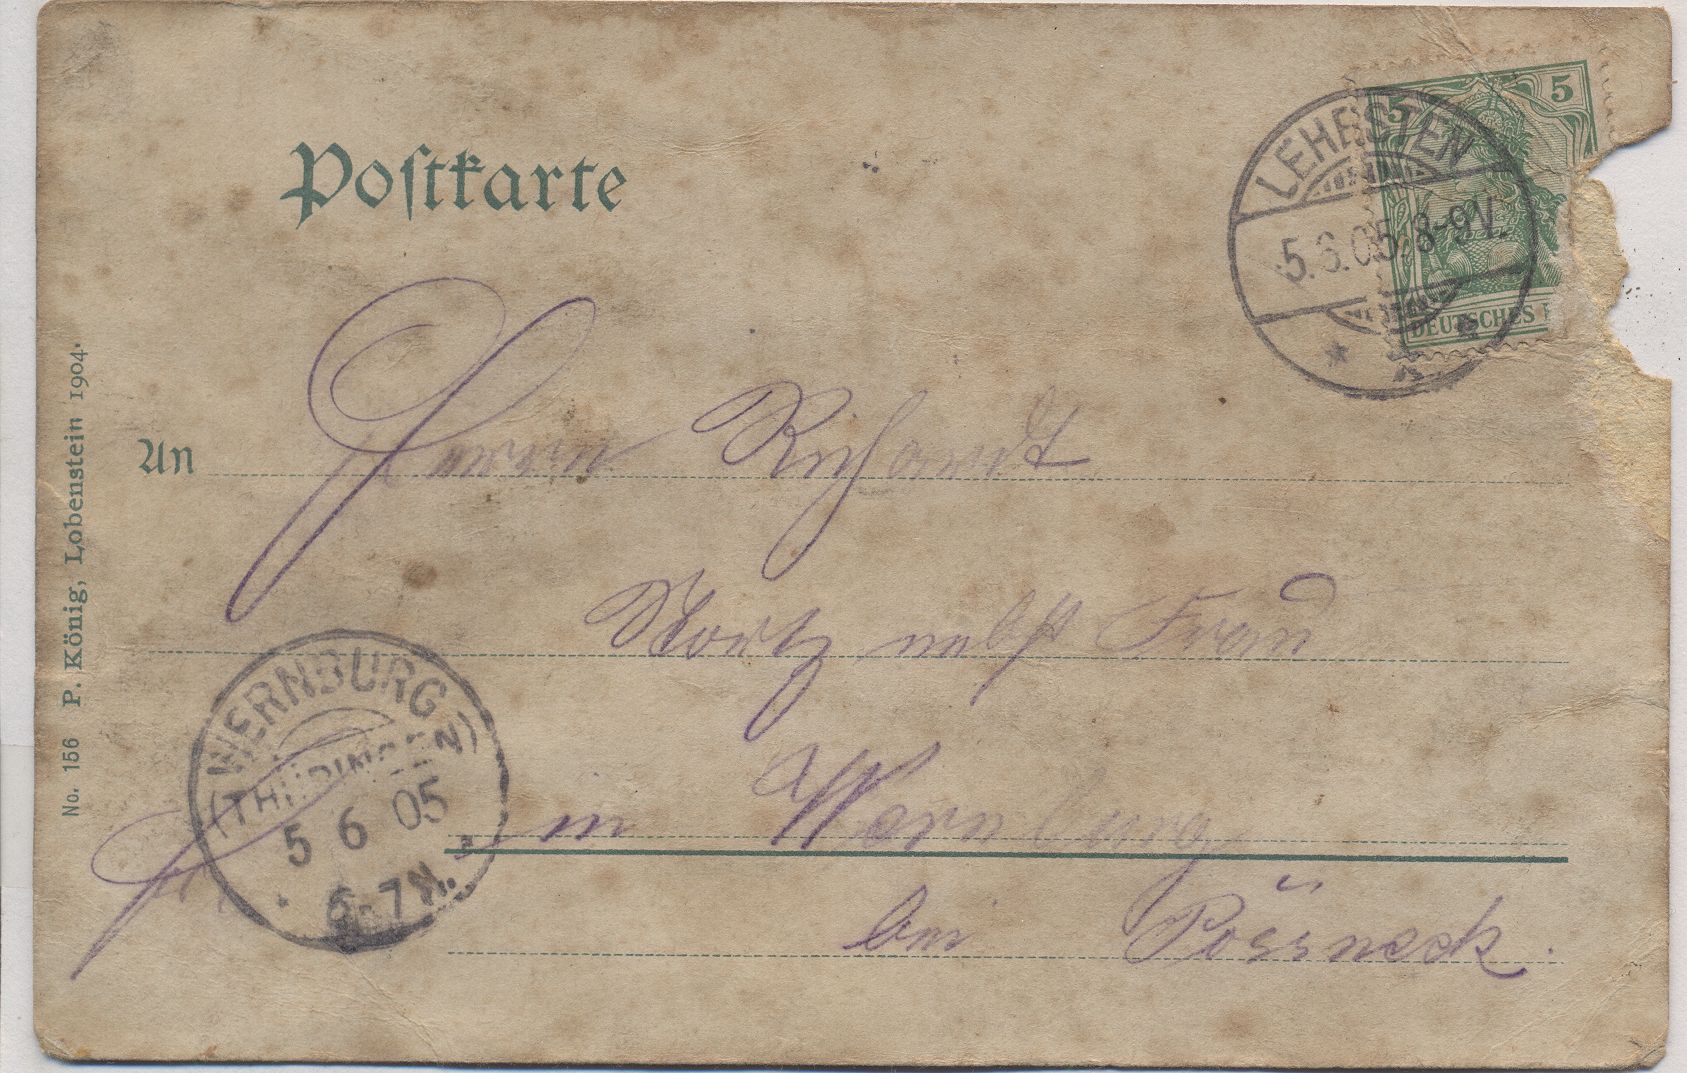 Postkarte
5 5
DEUTSCHES
LEHESTEN
5.6.05. 8-9V.
An
Herrn Richardt
nebst Frau
in Wernburg
bei Pössneck.
WERNBURG
(THÜRINGEN)
5 6 05
6-7N.
No. 156 P. König, Lobenstein 1904.